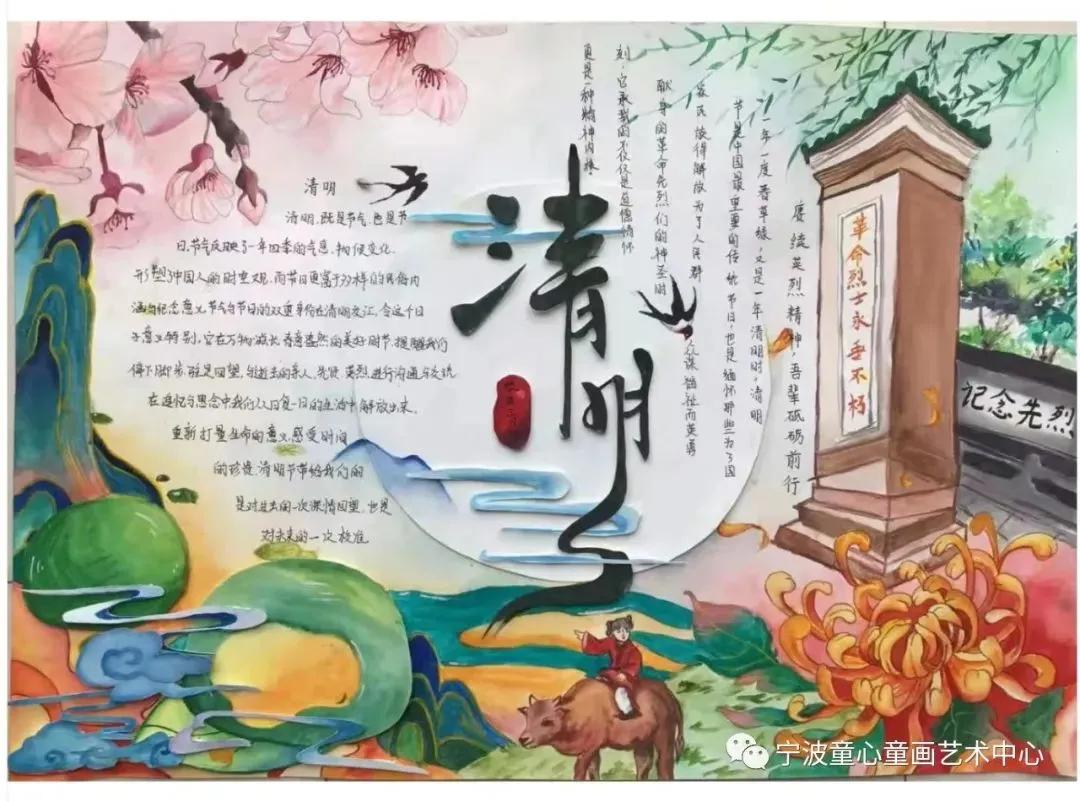 清明
清明,既是节气,也是节
日,节气反映了一年四季的气息、物候变化
形塑了中国人的时空观,而节日更富于多样的民俗内
涵与纪念意义,节气与节日的双重身份在清明交汇,令这个日
子意义特别,它在万物滋长春意盎然的美好时节,提醒我们
停下脚步,驻足回望,与逝去的亲人、先贤、英烈进行沟通与交流
在追忆与思念中我们从日复一日的生活中解放出来,
重新打量生命的意义,感受时间
的珍贵,清明节带给我们的
是对过去的一次深情回望,也是
对未来的一次校准
清明
赓续英烈精神,吾辈砥砺前行
一年一度春草绿,又是一年清明时,清明
节是中国最重要的传统节日,也是缅怀那些为了国
家民族得解放为了人民群众谋福祉而英勇
献身的革命先烈们的神圣时
刻,它承载的不仅仅是道德情怀
更是一种精神内核
革命烈士永垂不朽
记念先烈
宁波童心童画艺术中心